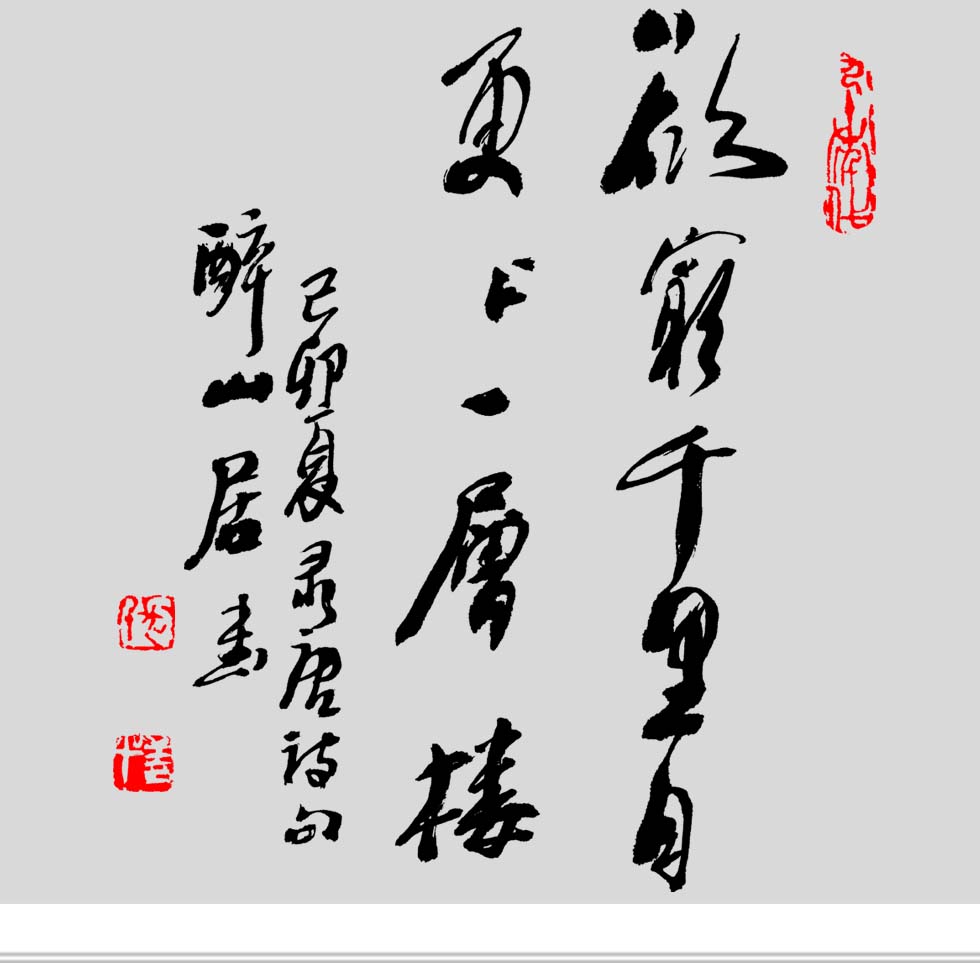 欲窮千里目
更上一層楼
己卯夏录唐詩句
醉山居书